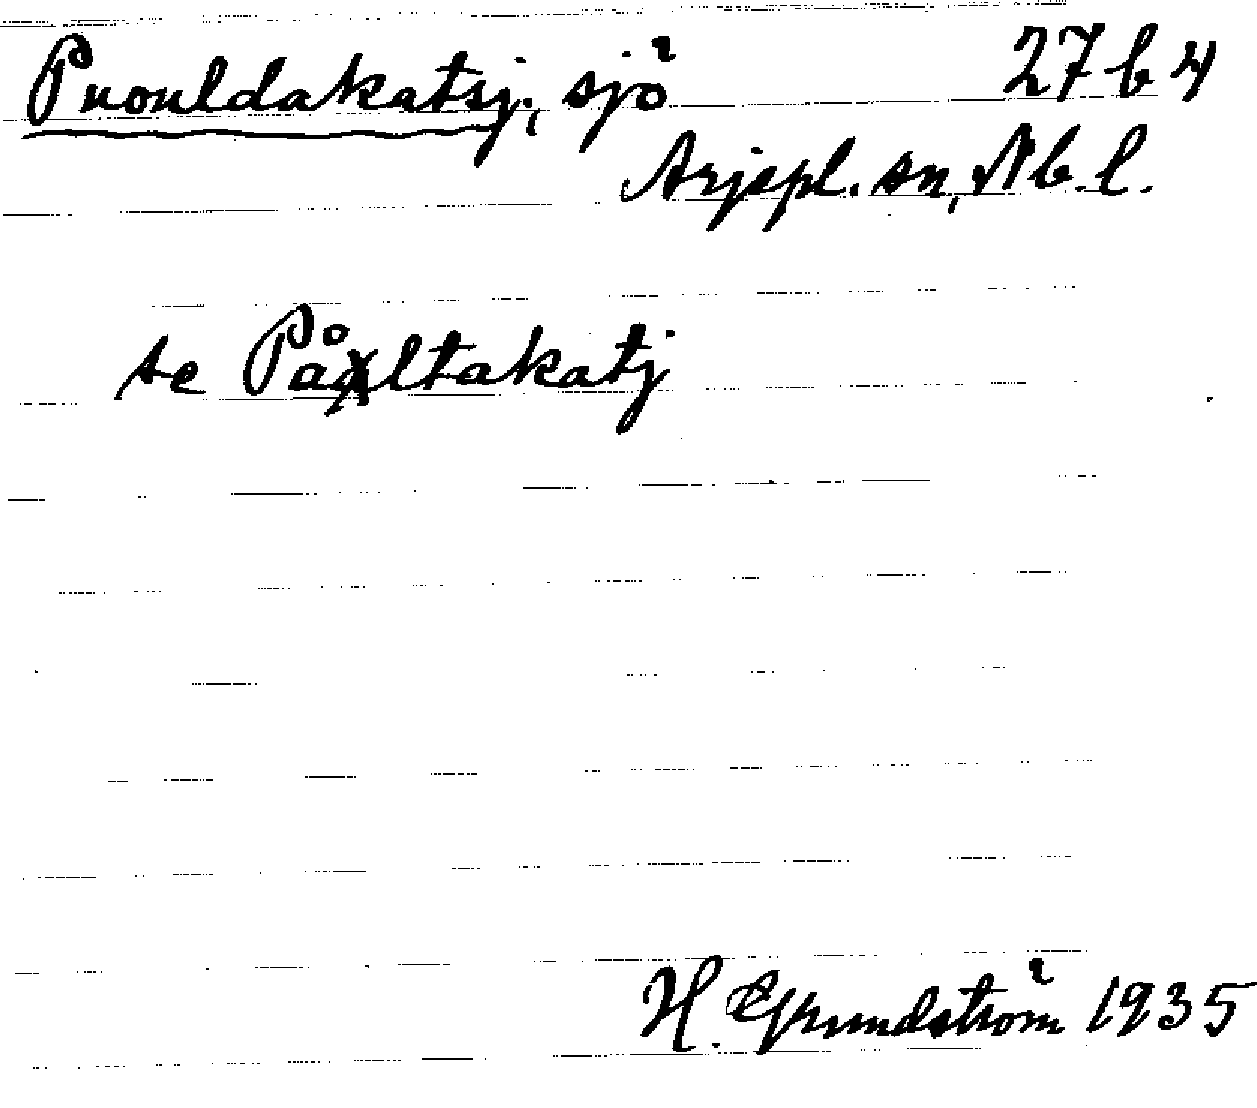 Puouldakatsj, sjö 27 b 4
Arjepl. sn, Nb. l.
se Påltakatj
H. Grundström 1935